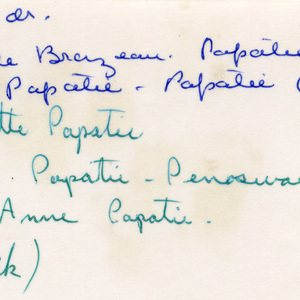 dr.
e Brazeau. Papatie
Papatie - Papatie (
tte Papatie
. Papatie - Penoswa
Anne Papatie.
k)